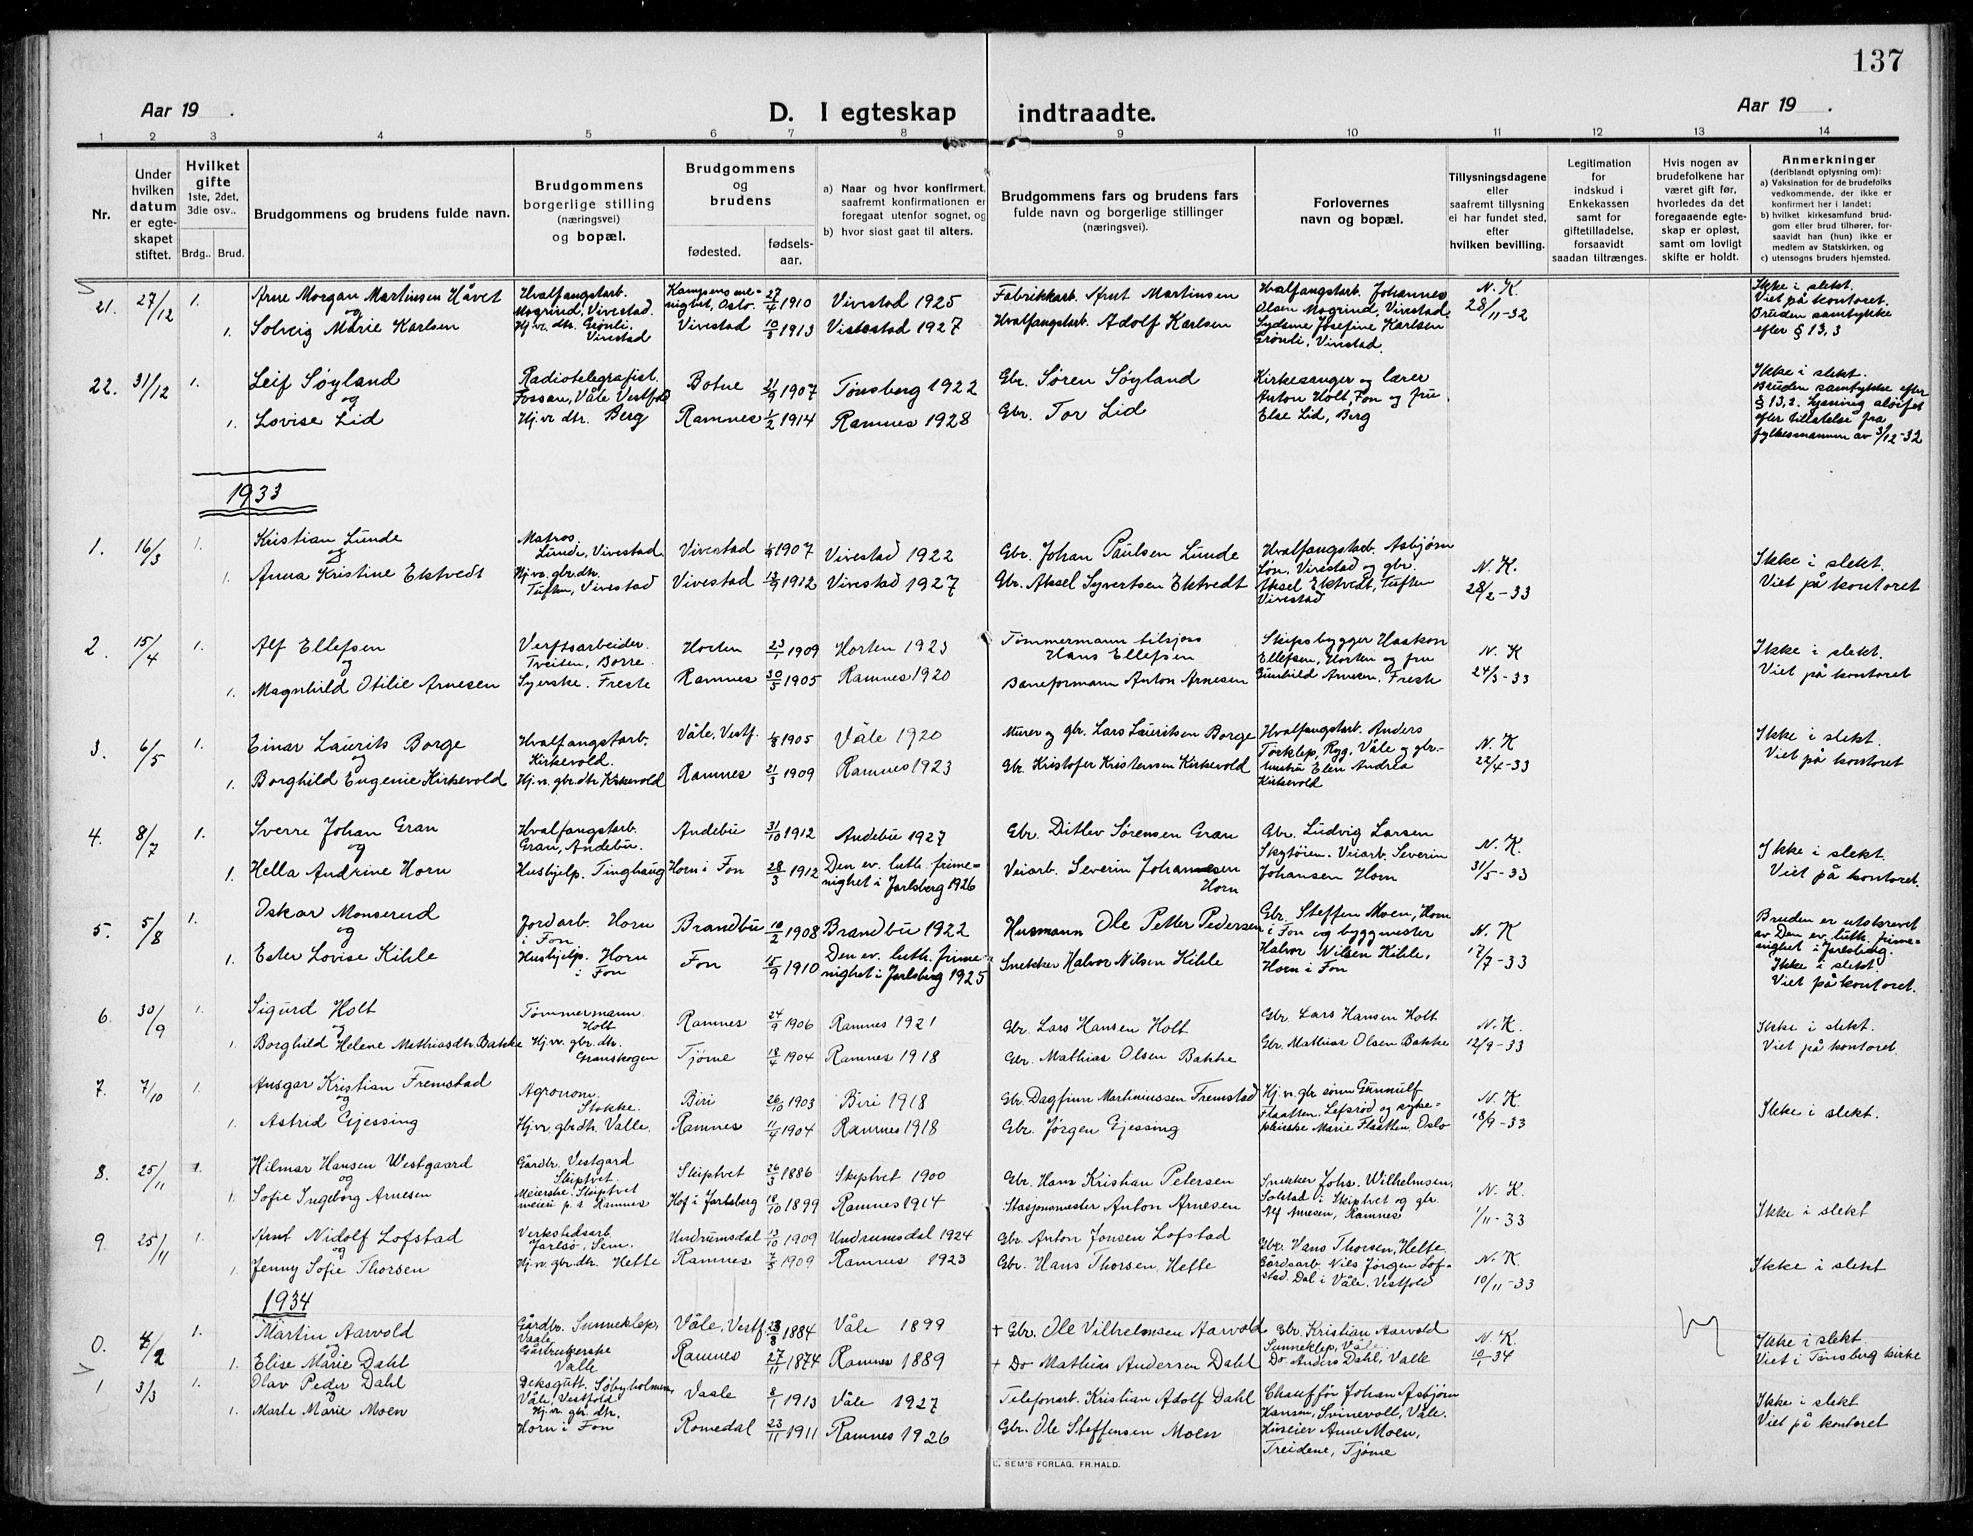 137
Aar 19   .
D. I egteskap indtraadte.
Aar 19   .
1 2 3 4 5 6 7 8 9 10 11 12 13 14
Nr.
Under hvilken datum er egteskapet stiftet.
Hvilket gifte
1ste, 2det, 3die osv..
Brdg.. Brud.
Brudgommens og brudens fulde navn.
Brudgommens borgerlige stilling (næringsvei) og bopæl.
Brudgommens og brudens
fødested.
fødselsaar.
a) Naar og hvor konfirmert, saafremt konfirmationen er foregaat utenfor sognet, og
b) hvor sidst gaat til alters.
Brudgommens fars og brudens fars fulde navn og borgerlige stillinger (næringsvei).
Forlovernes navn og bopæl.
Tillysningsdagene eller saafremt tillysning ei har fundet sted, efter hvilken bevilling.
Legitimation for indskud i Enkekassen samt for giftetilladelse, forsaavidt saadan tiltrænges.
Hvis nogen av brudefolkene har været gift før, hvorledes da det foregaaende egteskap er opløst, samt om lovligt skifte er holdt.
Anmerkninger
(deriblandt oplysning om):
a) Vaksination for de brudefolks vedkommende, der ikke er konfirmert her i landet;
b) hvilket kirkesamfund brudgom eller brud tilhører, forsaavidt han (hun) ikke er medlem av Statskirken, og
c) utensogns bruders hjemsted.
21. 27/12 1. Arne Morgan Martinsen Håvet Hvalfangstarb. Mogrind, Vivestad. Kampens menighet, Oslo. 27/4 1910 Vivestad 1925 Fabrikkarb. Arnt Martinsen Hvalfangstarb. Johannes Olsen Mogrind, Vivestad N. K 28/11-32 Ikke i slekt. Viet på kontoret.
og
1. Solveig Marie Karlsen Hj.vr. dtr. Grønli. Vivestad Vivestad 10/3 1913 Vivestad 1927 Hvalfangstarb. Adolf Karlsen Josefine Karlsen Grønli, Vivestad. Bruden samtykke efter § 13, 3
22. 31/12 1. Leif Søyland Radiotelegrafist. Fossan, Våle Vestfold Botne 21/9 1907 Tønsberg 1922 Gbr. Søren Søyland Kirkesanger og lærer Anton Holt, Fon og fru Ikke i slekt. Bruden samtykke efter § 13, 2.
og
1. Lovise Lid Hj.vr dtr. Berg Ramnes 1/2 1914 Ramnes 1928 Gbr. Tor Lid Else Lid, Berg Lysning sløifet efter tillatelse fra fylkesmannen av 3/12-32
1933
1. 16/3 1. Kristian Lunde Matros. Lunde, Vivestad Vivestad 1907 Vivestad 1922 Gbr. Johan Paulsen Lunde Hvalfangstarb. Asbjørn Vivestad og gbr. N. K. 28/2-33 Ikke i slekt.
og
1. Anna Kristine Ektvedt Hj.vr. gbr.dtr. Tuften, Vivestad Vivestad 12/9 1912 Vivestad 1927 Gbr. Aksel Syvertsen Ektvedt Aksel Ektvedt, Tuften Vivestad Viet på kontoret
2. 15/4 1. Alf Ellefsen Verftsarbeider. Tveiten, Borre. Horten 23/1 1909 Horten 1923 Tømmermann tilsjøss Hans Ellefsen Skipsbygger Haakon Ellefsen, Horten og fru N. K 24/3-33 Ikke i slekt.
og
1. Magnhild Otilie Arnesen Syerske. Freste Ramnes 30/5 1905 Ramnes 1920 Baneformann Anton Arnesen Gunhild Arnesen. Freste Viet på kontoret
3. 6/5 1. Einar Laurits Borge Hvalfangstarb. Kirkevold. Våle, Vestf. 1/8 1905 Våle 1920 Murer og gbr. Lars Lauritsen Borge Hvalfangstarb. Anders Torklep, Ryg, Våle og gbr. N. K 22/4-33 Ikke i slekt.
og
1. Borghild Eugenie Kirkevold Hj.vr. gbr.dtr Kirkevold Ramnes 21/3 1909 Ramnes 1923 Gbr. Kristofer Kristensen Kirkevold hustru Elen Andrea Kirkevold Viet på kontoret
4. 8/7 1. Sverre Johan Gran Hvalfangstarb. Gran, Andebu. Andebu 31/10 1912 Andebu 1927 Gbr. Ditlev Sørensen Gran Gbr. Ludvig Larsen N. K. 31/5-33 Ikke i slekt.
og
1. Hella Andrine Horn Hushjelp. Tinghaug Horn i Fon 28/3 1912 Den ev. luth. frimenighet i Jarlsberg 1926 Veiarb. Severin Johannesen Horn Veiarb. Severin Johansen Horn Viet på kontoret.
5. 5/8 1. Oskar Monserud Jordarb. Horn i Fon Brandbu 10/2 1908 Brandbu 1922 Husmann Ole Petter Pedersen Gbr. Steffen Moen, Horn i Fon og byggmester N. K 17/7-33 Bruden er utskrevet av Den ev. luth. frimenighet i Jarlsberg.
og
1. Ester Lovise Kihle Hushjelp. Horn i Fon Fon 15/9 1910 Den ev. luth. frimenighet i Jarlsberg 1925 Snekker Halvor Nilsen Kihle Halvor Nilsen Kihle, Horn i Fon Ikke i slekt. Viet på kontoret.
6. 30/9 1. Sigurd Holt Tømmermann. Holt Ramnes 24/9 1906 Ramnes 1921 Gbr. Lars Hansen Holt Gbr Lars Hansen Holt N. K. 12/9-33 Ikke i slekt.
og
1. Borghild Helene Mathiasdtr. Bakke Hj.vr. gbr. dtr. Granskogen Tjøme 18/4 1904 Ramnes 1918 Gbr. Mathias Olsen Bakke Gbr. Mathias Olsen Bakke Viet på kontoret.
7. 7/10 1. Ansgar Kristian Fremstad Agronom. Stokke. Biri 26/10 1903 Biri 1918 Gbr. Dagfinn Martiniussen Fremstad Hj.v. gbr sønn Gunnulf Flaatten. Lefsrød og sykepleirske N. K. 18/9-33
og
1. Astrid Gjessing Hj.vr gbr.dtr. Valle. Ramnes 11/4 1904 Ramnes 1918 Gbr. Jørgen Gjessing Marie Flaatten, Oslo Ikke i slekt.
8. 25/11 1. Hilmar Hansen Westgaard Gårdbr. Vestgard Skiptvet. Skiptvet 26/3 1886 Skiptvet 1900 Gbr. Hans Kristian Petersen Snekker Johs. Wilhelmsen, Solstad i Skiptvet og gbr. N. K. 1/11-33
og
1. Sofie Ingeborg Arnesen Meierske. Skiptvet meieri p. t Ramnes Hof i Jarlsberg 18/10 1899 Ramnes 1914 Stasjonsmester Anton Arnesen Alf Arnesen, Ramnes Ikke i slekt
9. 25/11 1. Arnt Nidolf Lofstad Verkstedsarb. Jarlsø, Sem. Undrumsdal 13/10 1909 Undrumsdal 1924 Gbr. Anton Jonsen Lofstad Gbr. Hans Thorsen, Helte. N. K. 10/11-33
og
1. Jenny Sofie Thorsen Hj.vr. gbr.dtr. Hette Ramnes 7/5 1909 Ramnes 1923 Gbr. Hans Thorsen, Hette Gårdsarb. Nils Jørgen Lofstad Dal i Våle, Vestfold Ikke i slekt
1934
0. 4/2 1. Martin Aarvold Gårdbr. Sunneklep, Vaale Våle, Vestf. 23/8 1884 Våle 1899 + Gbr. Ole Vilhelmsen Aarvold Gbr. Kristian Aarvold Sunneklep, Våle. N. K. 10/1 34 Ikke i slekt.
og
1. Elise Marie Dahl Gårdbrukerske Valle Ramnes 27/11 1874 Ramnes 1889 + Do Mathias Andersen Dahl Do Anders Dahl, Valle Viet i Tønsberg kirke
1 3/3 1. Olav Peder Dahl Deksgutt. Søbyholmen, Våle, Vestfold Vaale 8/1 1913 Våle 1927 Telefonarb. Kristian Adolf Dahl Chauffør Johan Asbjørn Hansen, Svinevoll, Våle. Ikke i slekt
og
1. Marle Marie Moen Hj.vr. gbr. dtr. Horn i Fon Romedal 23/11 1911 Ramnes 1926 Gbr. Ole Steffensen Moen Huseier Anne Moen, Treidene, Tjøme Viet på kontoret
E. SEM'S FORLAG. FR.HALD.